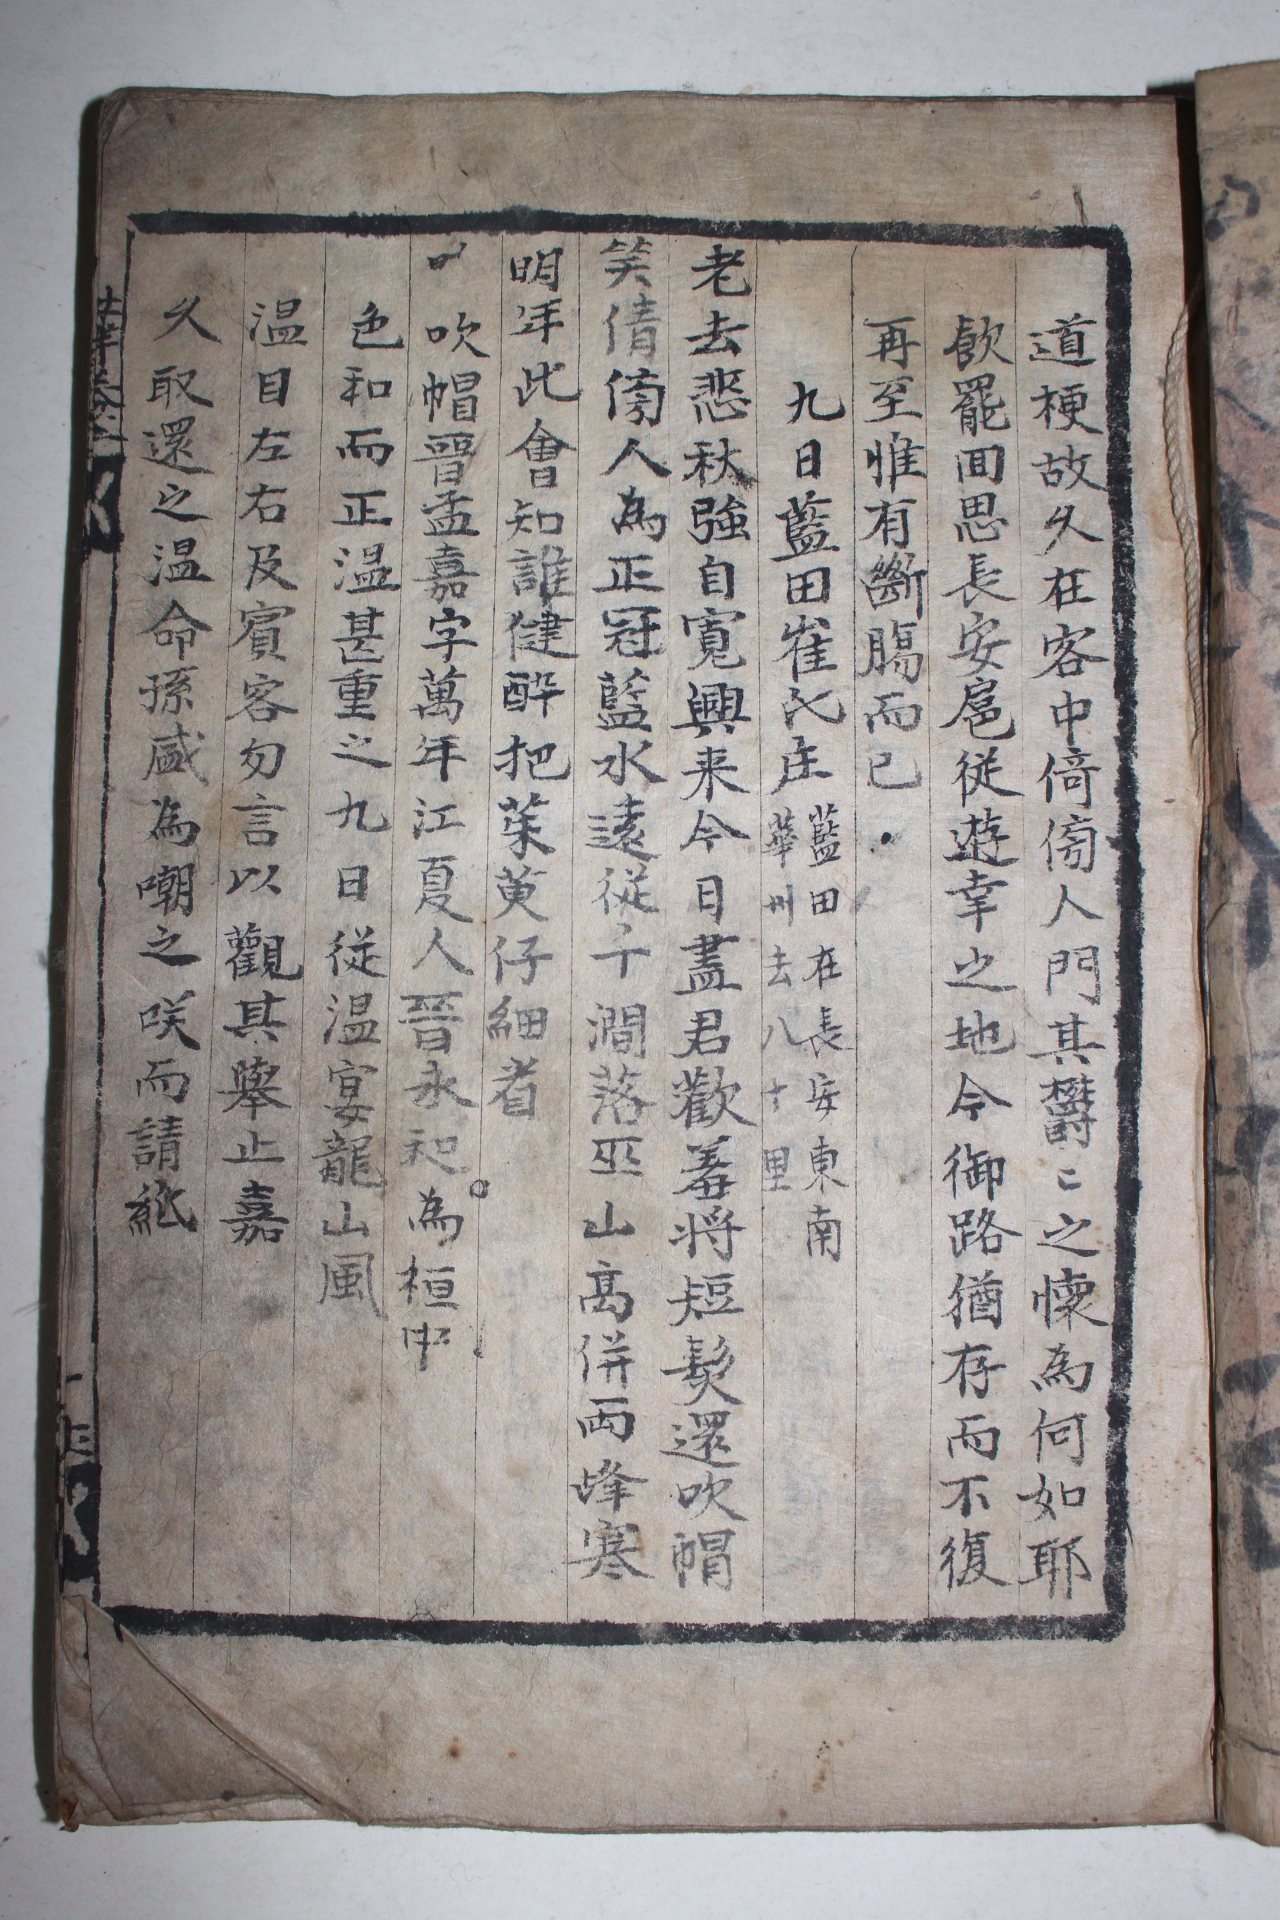 道梗故久在客中倚傍人門其欝〻之懷為何如耶
飮罷回思長安扈從遊幸之地今御路猶存而不復
再至惟有斷膓而已
九日藍田崔氏庄
藍田在長安東南
華州去八十里
老去悲秋強自寬興来今日盡君歡羞将短髮還吹帽
笑倩傍人為正冠藍水遠從千澗落巫山高併兩峰寒
明年此會知誰健醉把茱萸仔細看
吹帽晉孟嘉字萬年江夏人晉永和為桓中
色和而正温甚重之九日從温宴龍山風
温目左右及賓客勿言以觀其擧止嘉
久取還之温命孫盛為嘲之咲而請紙